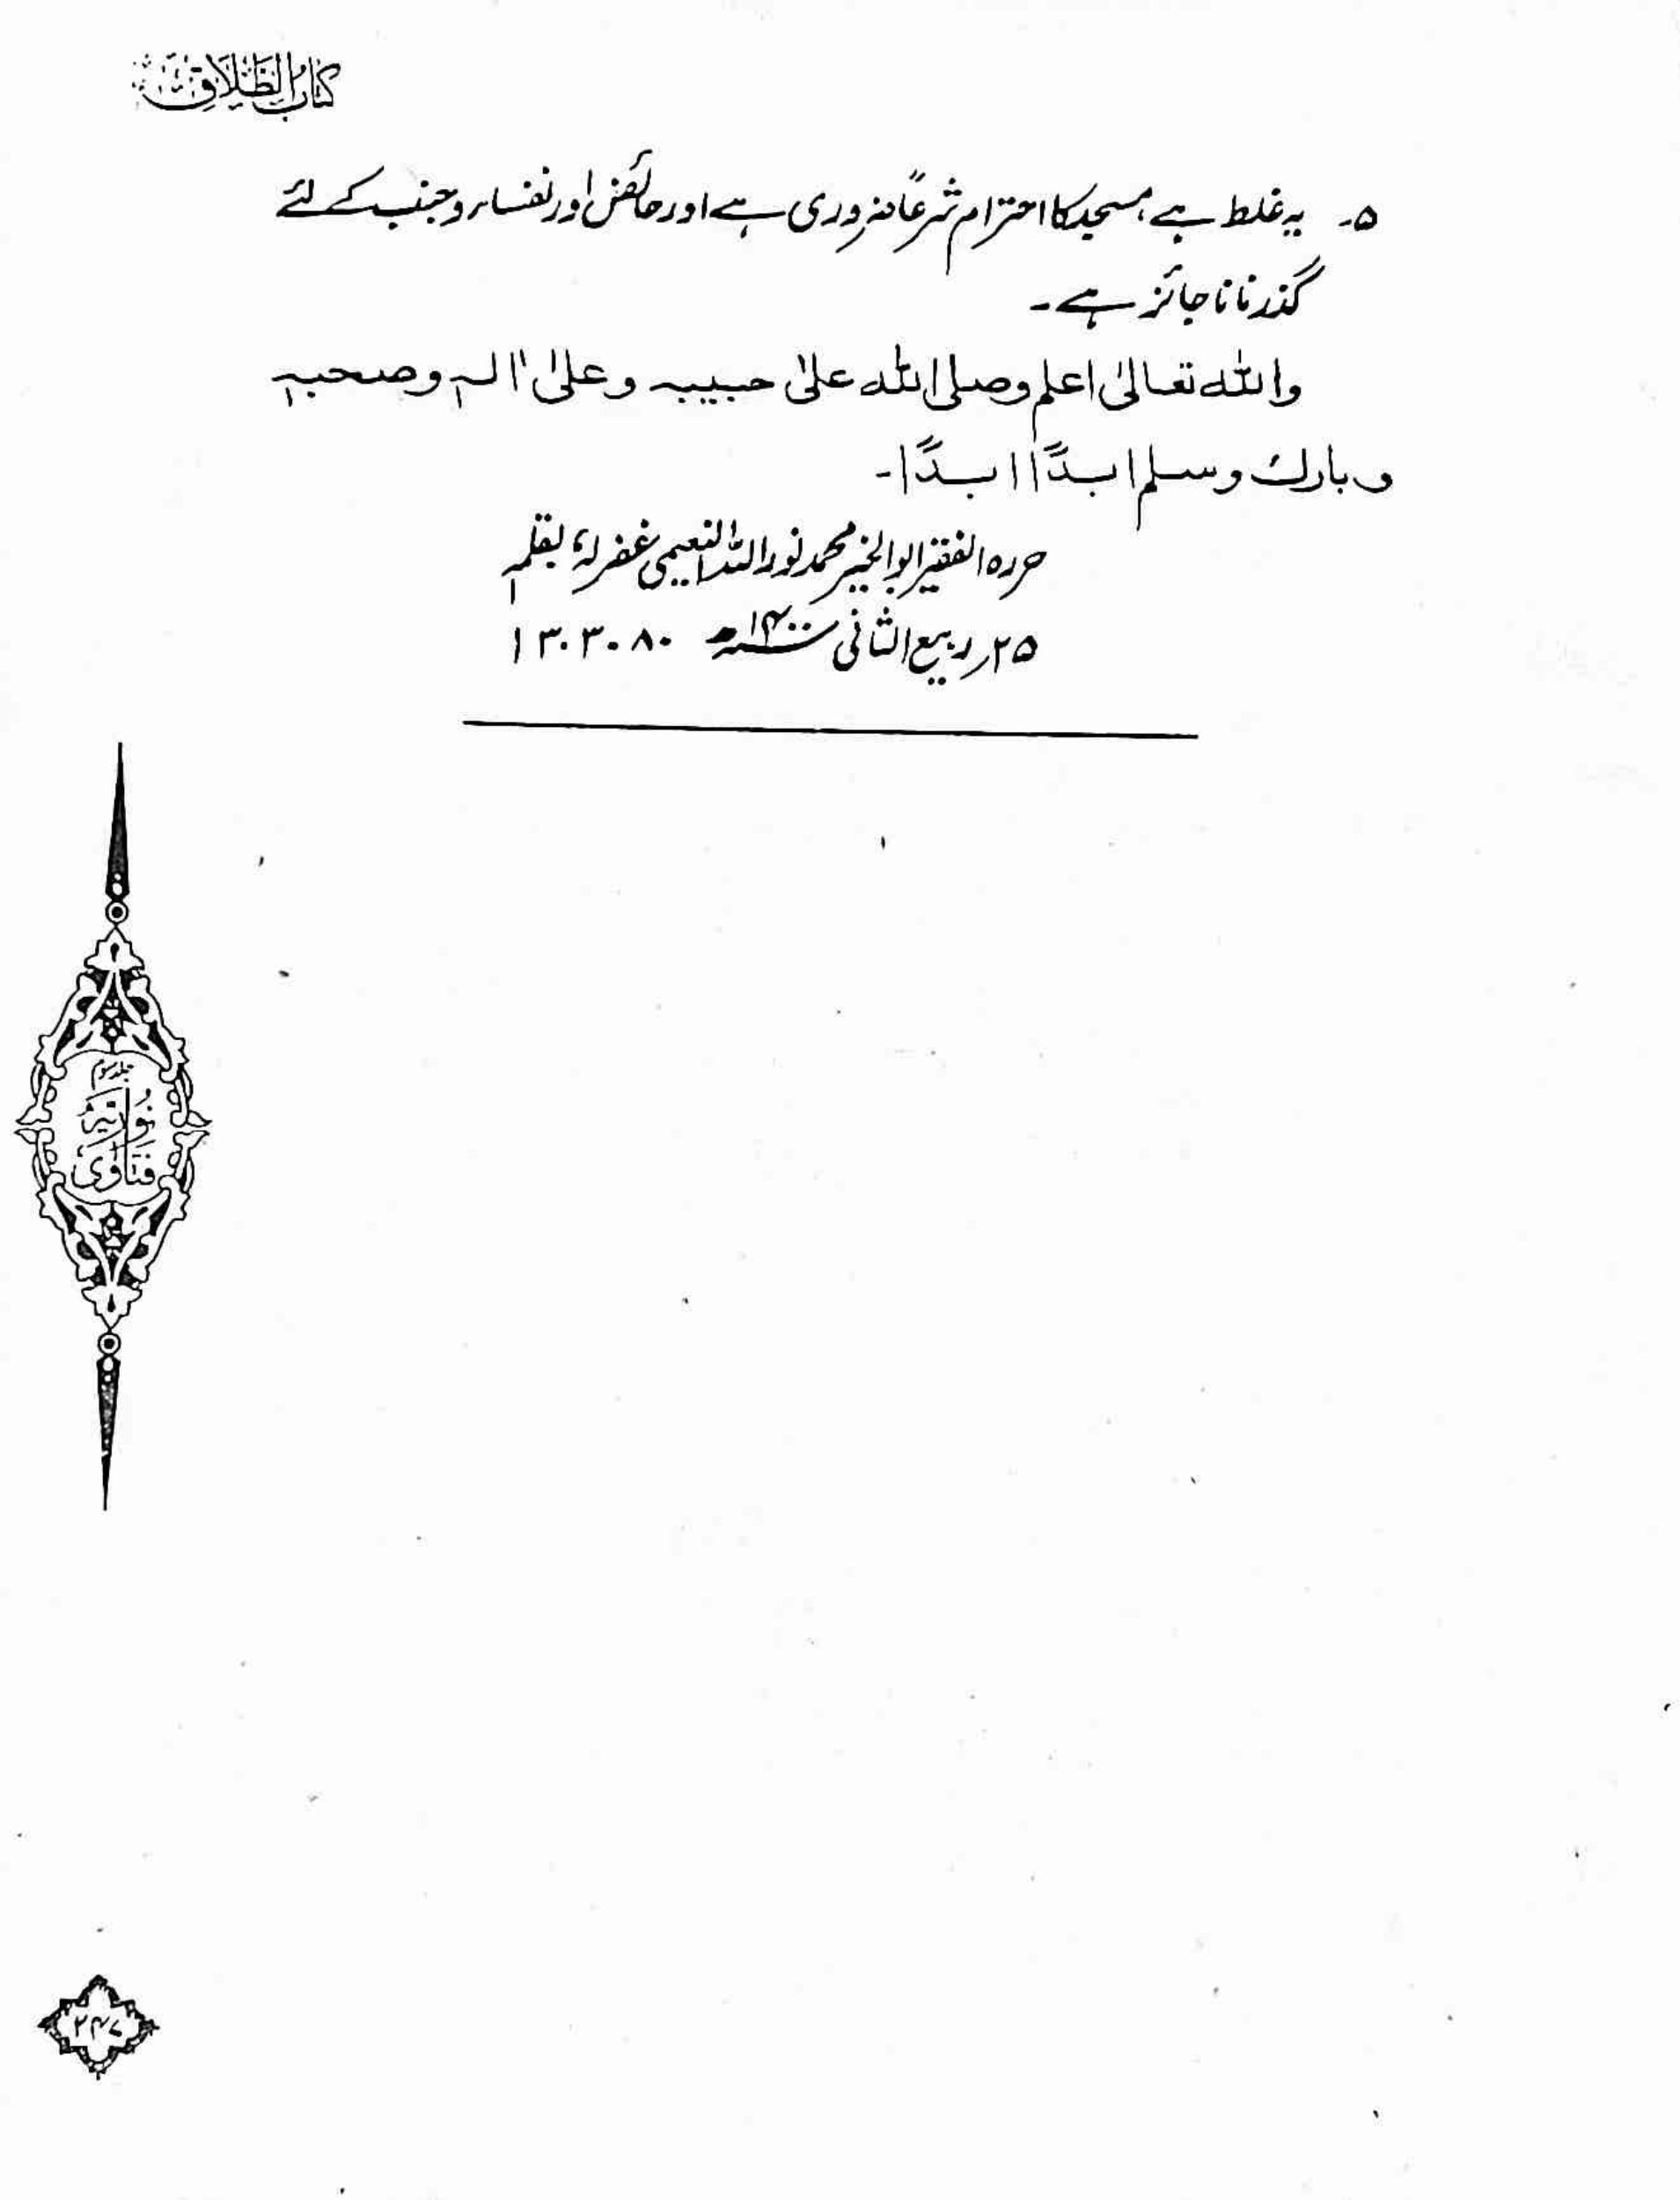 کتاب الطلاق
۵۔ یہ غلط ہے، مسجد کا احترام شرعًا ضروری ہے اور حائض اور نفساء و جنب کے لئے
گذرنا ناجائز ہے۔
واللہ تعالیٰ اعلم وصلی اللہ علیٰ حبیبہ وعلیٰ اٰلہ وصحبہ
وبارك وسلم ابدًا ابدًا۔
حررہ الفقیر ابوالخیر محمد نور اللہ النعیمی غفرلہٗ بقلمہ
۲۵؍ ربیع الثانی ۱۴۰۰ھ ۱۳۰۳۰۸۰
جلد سوم
نوریہ
فتاویٰ
۲۴۷